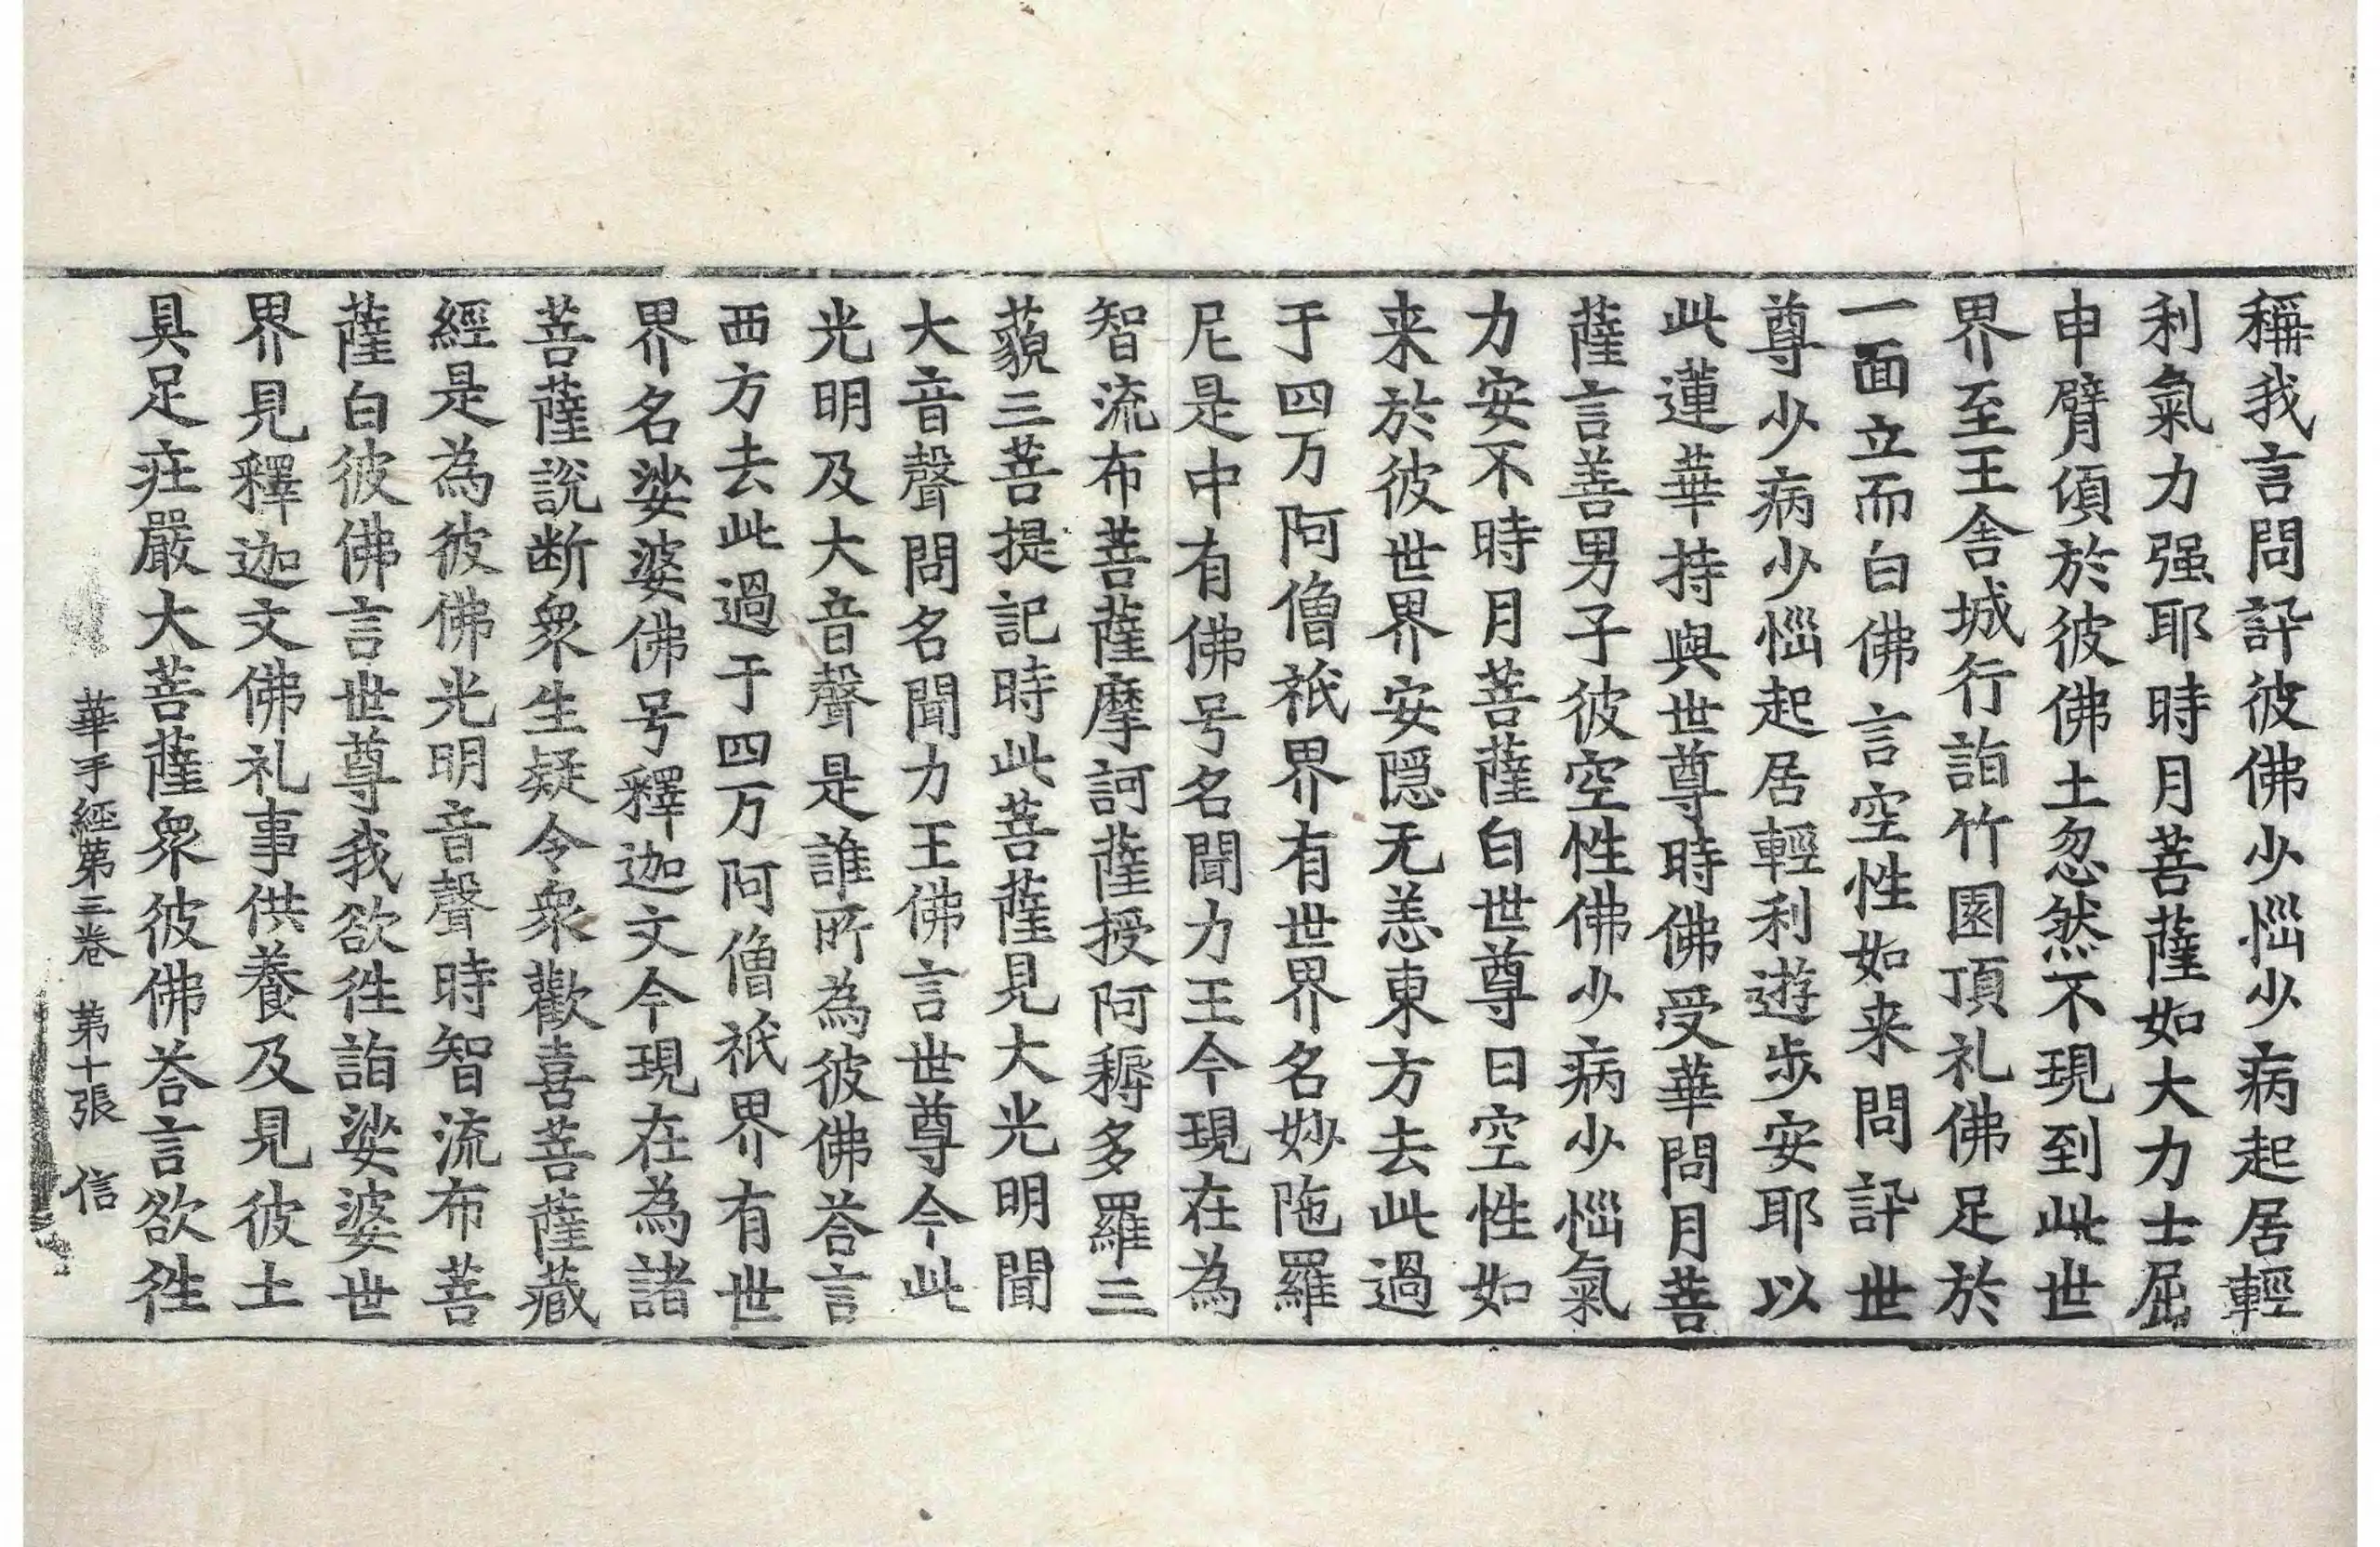 稱我言問訊彼佛少惱少病起居輕
利氣力强耶時月菩薩如大力士屈
申臂頃於彼佛土忽然不現到此世
界至王舍城行詣竹園頂礼佛足於
一面立而白佛言空性如来問訊世
尊少病少惱起居輕利遊步安耶以
此蓮華持與世尊時佛受華問月菩
薩言善男子彼空性佛少病少惱氣
力安不時月菩薩白世尊曰空性如
来於彼世界安隱无恙東方去此過
于四万阿僧祇界有世界名妙陁羅
尼是中有佛号名聞力王今現在為
智流布菩薩摩訶薩授阿耨多羅三
藐三菩提記時此菩薩見大光明聞
大音聲問名聞力王佛言世尊今此
光明及大音聲是誰所為彼佛荅言
西方去此過于四万阿僧祇界有世
界名娑婆佛号釋迦文今現在為諸
菩薩說断衆生疑令衆歡喜菩薩藏
經是為彼佛光明音聲時智流布菩
薩白彼佛言世尊我欲徃詣娑婆世
界見釋迦文佛礼事供養及見彼土
具足莊嚴大菩薩衆彼佛荅言欲徃
華手經第三卷 第十張 信